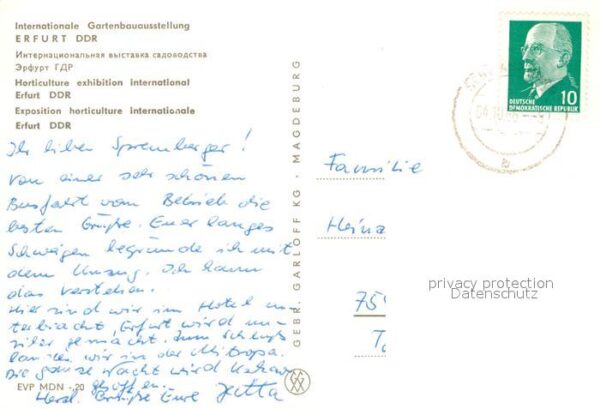 Internationale Gartenbauausstellung
ERFURT DDR
Интернациональная выставка садоводства
Эрфурт ГДР
Horticulture exhibition international
Erfurt DDR
Exposition horticulture internationale
Erfurt DDR
Ihr lieben Spremberger!
Von einer sehr schönen
Busfahrt vom Betrieb die
besten Grüße. Euer langes
Schweigen begründe ich mit
dem Umzug. Ich kann
das verstehen.
Hier sind wir im Hotel un-
terbracht, Erfurt wird un-
sicher gemacht. Zum Schluß
landen wir in der Mitropa.
Die ganze Nacht wird
Herzl. Grüße Eure Jutta
EVP MDN -,20
GEBR. GARLOFF KG · MAGDEBURG
DEUTSCHE
DEMOKRATISCHE REPUBLIK
10
Familie
Heinz
75
privacy protection
Datenschutz